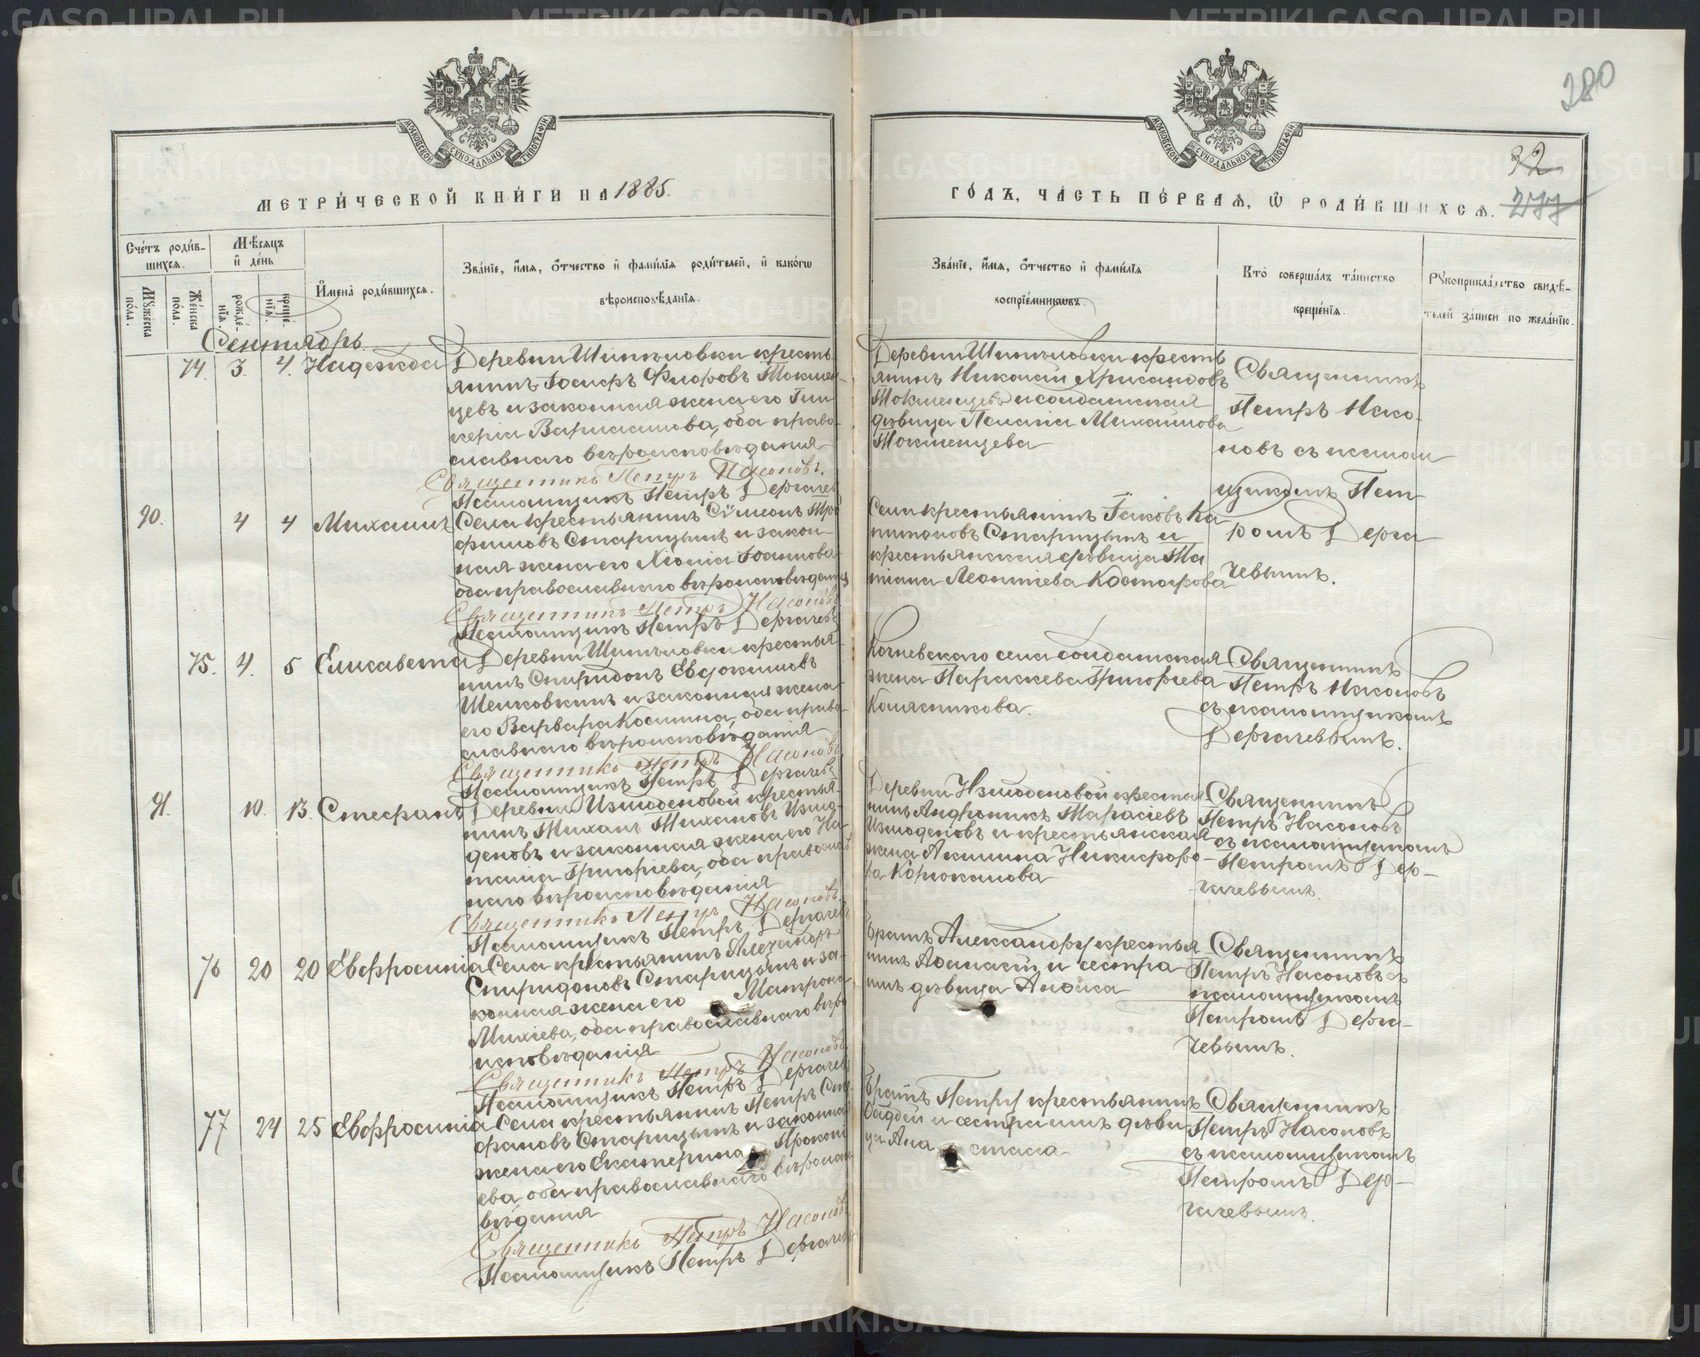 280
МЕТРИ́ЧЕСКОЙ КНИ́ГИ НА 1885.
ГО́ДЪ, ЧА́СТЬ ПЕ́РВАѦ, Ѡ҆ РОДИ́ВШИХСѦ.
32
277
Сче́тъ роди́в-
шихсѧ.
Мѣ́сѧцъ
и҆ де́нь
И҆мена̀ роди́вшихсѧ.
Зва́нїе, и҆́мѧ, ѻ҆́тчество и҆ фами́лїѧ роди́телей, и҆ како́гѡ
вѣроисповѣ́данїѧ.
Му́жеска по́ла.
Же́нска по́ла.
рожде́нїѧ.
креще́нїѧ.
Зва́нїе, и҆́мѧ, ѻ҆́тчество и҆ фами́лїѧ
воспрїе́мникѡвъ.
Кто̀ соверша́лъ та́инство
креще́нїѧ.
Рꙋкоприкла́дство свидѣ́-
телей за́писи по жела́нїю.
Сентябрь
74. 3. 4. Надежда
Деревни Шипиловки кресть
янинъ Іосифъ Флоровъ Токмен-
цевъ и законная жена его Гли-
керія Варлаамова, оба право-
славнаго вѣроисповѣданія
Священникъ Петръ Насоновъ.
Псаломщикъ Петръ Дергачев
Деревни Шипиловки кресть
янинъ Николай Хрисанфовъ
Токменцевъ и солдатская
дѣвица Пелагія Михаилова
Токменцева
Священникъ
Петръ Насо-
новъ съ псалом
щикомъ Пет
ромъ Дерга
чевымъ.
90. 4 4 Михаилъ
Села крестьянинъ Сѵмеонъ Тро
фимовъ Старицынъ и закон-
ная жена его Хіонія Іоаннова
оба православнаго вѣроисповѣданія
Священникъ Петръ Насоновъ
Псаломщикъ Петръ Дергачевъ
Села крестьянинъ Іаковъ Ка
питоновъ Старицынъ и
крестьянская дѣвица Та
тіана Леонтіева
75. 4. 5 Елисавета
Деревни Шипиловки крестья
нинъ Спиридонъ Евдокимовъ
и законная жена
его Варвара Космина, оба право
славнаго вѣроисповѣданія
Священникъ Петръ Насоновъ
Псаломщикъ Петръ Дергачевъ
села солдатская
жена Параскева Григорьева
Колясникова.
Священникъ
Петръ Насоновъ
съ псаломщикомъ
Дергачевымъ.
91. 10. 13. Стефанъ
Деревни Измоденовой крестья
нинъ Михаил Тихоновъ Измо-
деновъ и законная жена его На-
талія Григоріева, оба православ
наго вѣроисповѣданія
Священникъ Петръ Насоновъ
Псаломщикъ Петръ Дергачев
Деревни Измоденовой крестья
нинъ Андроникъ Тарасіевъ
Измоденовъ и крестьянская
жена Акилина Никифоро-
ва Корюкалова
Священникъ
Петръ Насоновъ
съ псаломщикомъ
Петромъ Дер-
гачевымъ.
76 20 20 Евфросинія
Села крестьянинъ Александръ
Спиридоновъ Старицынъ и за-
конная жена его Матрона
Михіева, оба православнаго вѣро
исповѣданія
Священникъ Петръ Насоновъ
Псаломщикъ Петръ Дергачевъ
Братъ Александру крестья
нинъ Аѳанасій и сестра
ихъ дѣвица Анѳиса
Священникъ
Петръ Насоновъ съ
псаломщикомъ
Петромъ Дерга-
чевымъ.
77 24 25 Евфросинія
Села крестьянинъ Петръ Сте
фановъ Старицынъ и законная
жена его Екатерина Прокопі
ева, оба православнаго вѣроиспо
вѣданія
Священникъ Петръ Насоновъ
Псаломщикъ Петръ Дергачевъ
Братъ Петру крестьянинъ
Фаддей и сестра ихъ дѣви
ца Ана стасія
Священникъ
Петръ Насоновъ
съ псаломщикомъ
Петромъ Дер-
гачевымъ.
METRIKI.GASO-URAL.RU